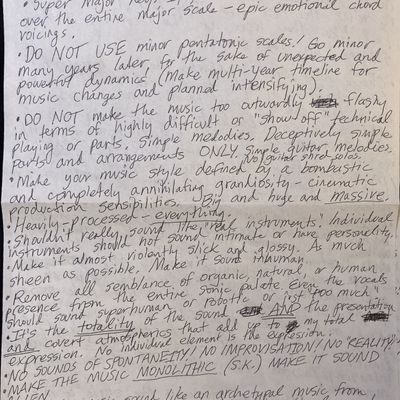 • Super Major keys
over the entire major scale - epic emotional chord
voicings.
• DO NOT USE minor pentatonic scales! Go minor
many years later, for the sake of unexpected and
powerful dynamics (Make multi-year timeline for
music changes and planned intensifying).
• DO NOT make the music too outwardly flashy
in terms of highly difficult or "show off" technical
playing or parts. Simple melodies. Deceptively simple
parts and arrangements ONLY. Simple guitar melodies.
No guitar shred solos.
• Make your music style defined by a bombastic
and completely annihilating grandiosity - cinematic
production sensibilities. Big and huge and massive.
• Heavily-processed - everything.
• Shouldn't really sound like "real" instruments. Individual
instruments should not sound intimate or have personality.
• Make it almost violently slick and glossy. As much
sheen as possible. Make it sound inhuman.
• Remove all semblance of organic, natural, or human
presence from the entire sonic palate. Even the vocals
should sound superhuman or robotic or just "too much"
• It's the totality of the sound AND the presentation
and covert atmospherics that add up to my total
expression. No individual element is the expression.
• NO SOUNDS OF SPONTANEITY! NO IMPROVISATION! NO "REALITY"!
• MAKE THE MUSIC MONOLITHIC (S.K.) MAKE IT SOUND
sound like an archetypal music, from